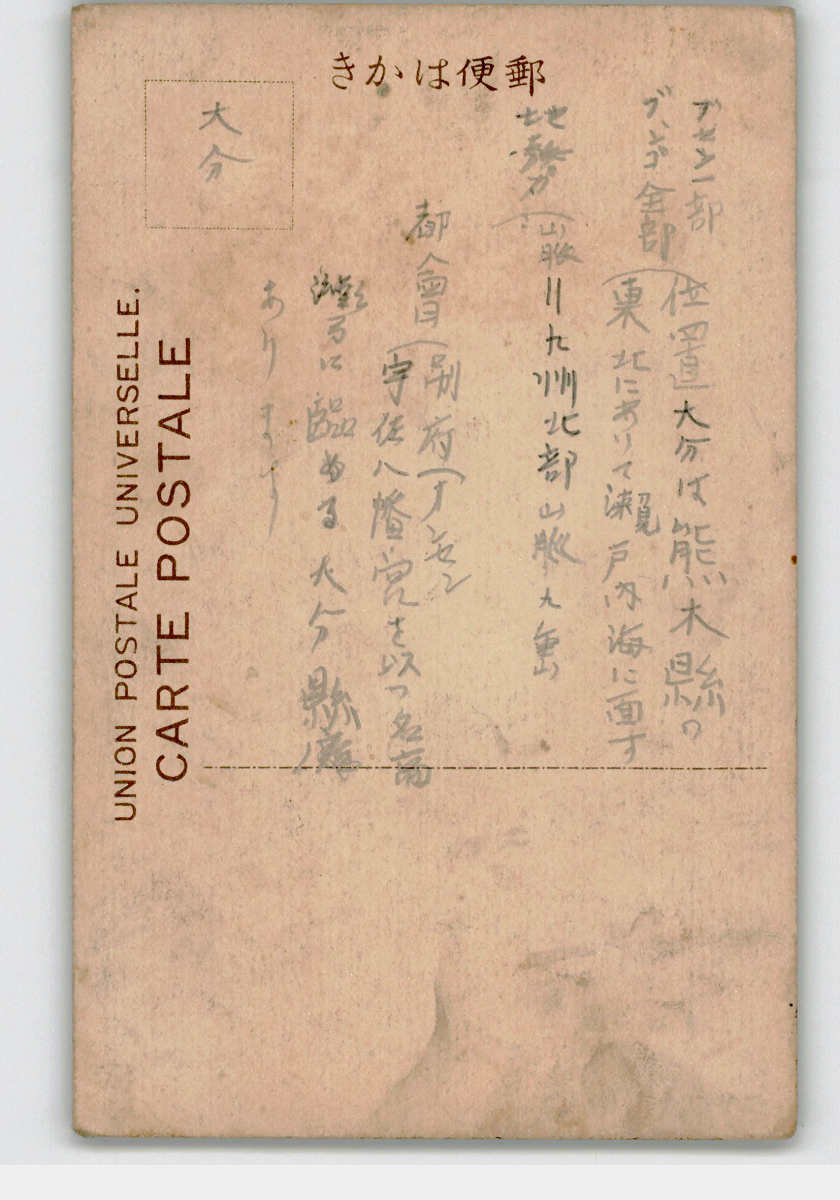 きかは便郵
大分
ブセン一部
ブンゴ全部
位置大分は熊本縣の
東北にありて瀬戸内海に面す
地勢
山脈
九州北部山脈九重山
都會
別府(オンセン
宇佐八幡宮を以つ名高
に臨める大分縣廳
あります
UNION POSTALE UNIVERSELLE.
CARTE POSTALE